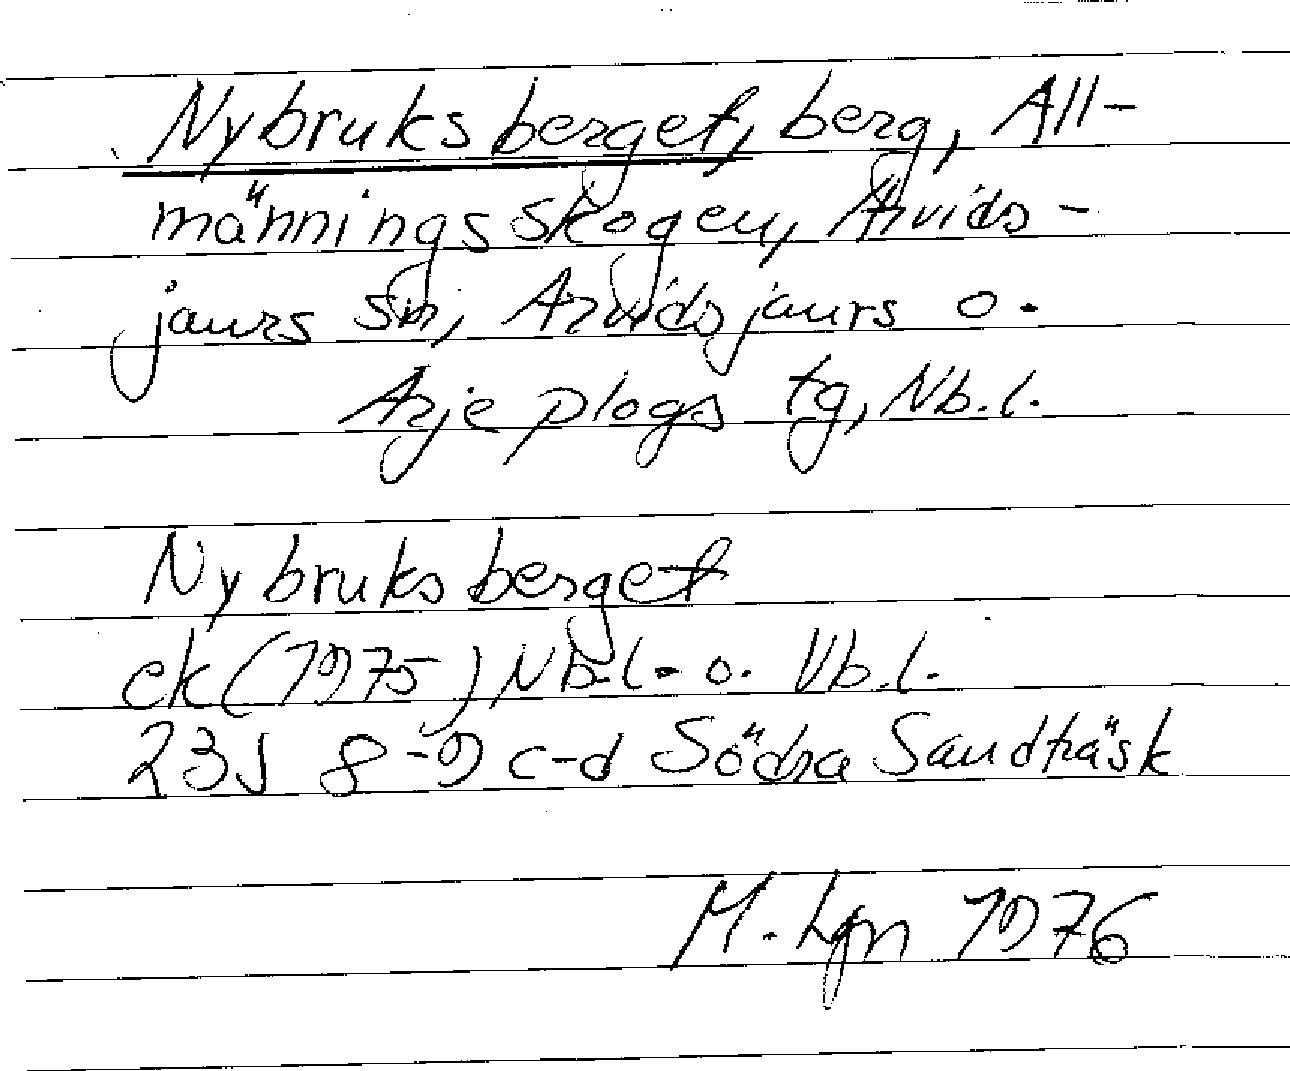 Nybruksberget, berg, All-
männingsskogen, Arvids-
jaurs sn, Arvidsjaurs o.
Arjeplogs tg, Nb.l.
Nybruksberget
ek (1975) Nb.l. o. Vb.l.
23J 8-9 c-d Södra Sandträsk
M. Lgn 1976